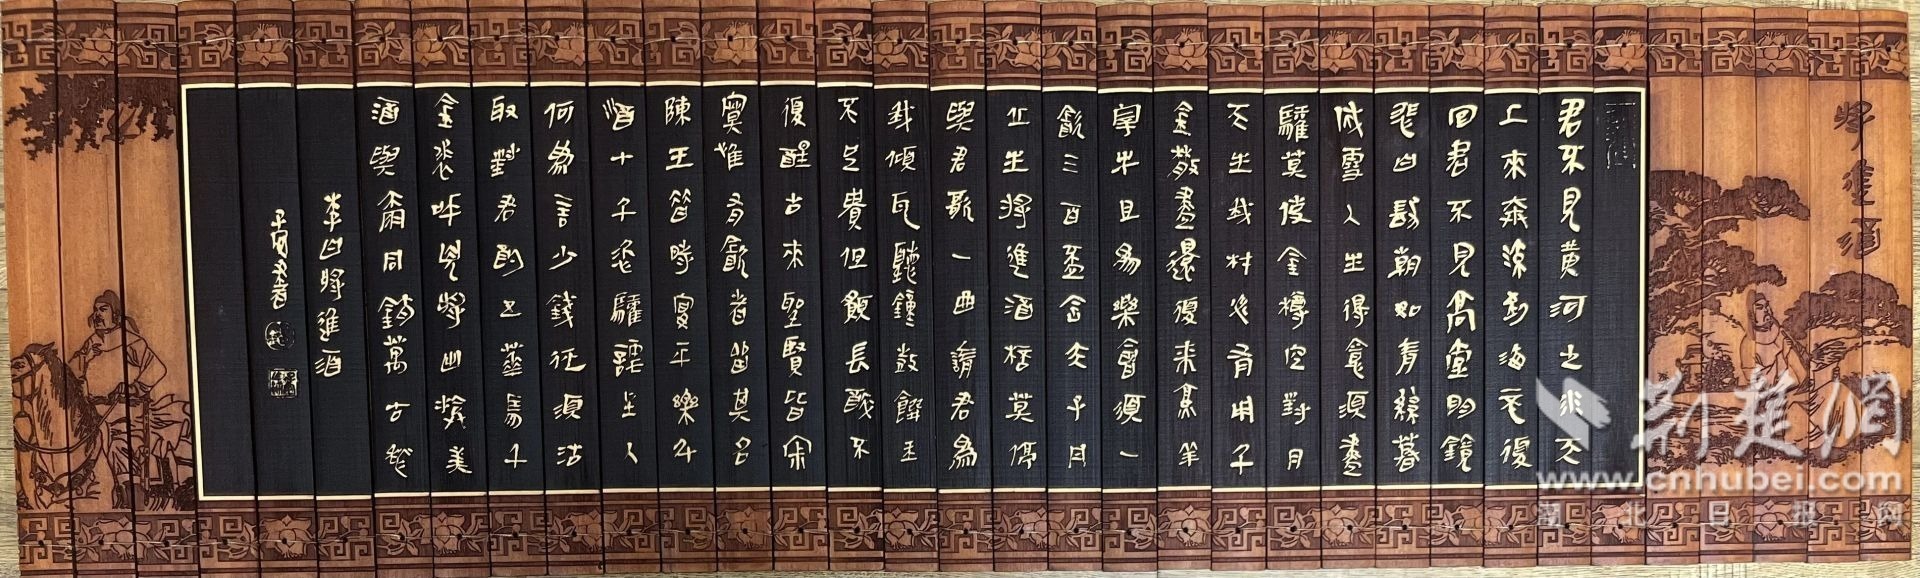 將進酒
君不見黃河之水天
上來奔流到海不復
回君不見高堂明鏡
悲白髮朝如青絲暮
成雪人生得意須盡
驩莫使金樽空對月
天生我材必有用千
金散盡還復來烹羊
宰牛且為樂會須一
飲三百盃岑夫子丹
丘生將進酒杯莫停
與君歌一曲請君為
我傾耳聽鐘鼓饌玉
不足貴但願長醉不
復醒古來聖賢皆寂
寞惟有飲者留其名
陳王昔時宴平樂斗
酒十千恣驩謔主人
何為言少錢徑須沽
取對君酌五華馬千
金裘呼兒將出換美
酒與爾同銷萬古愁
李白將進酒
荆楚網
www.cnhubei.com
湖北日报网